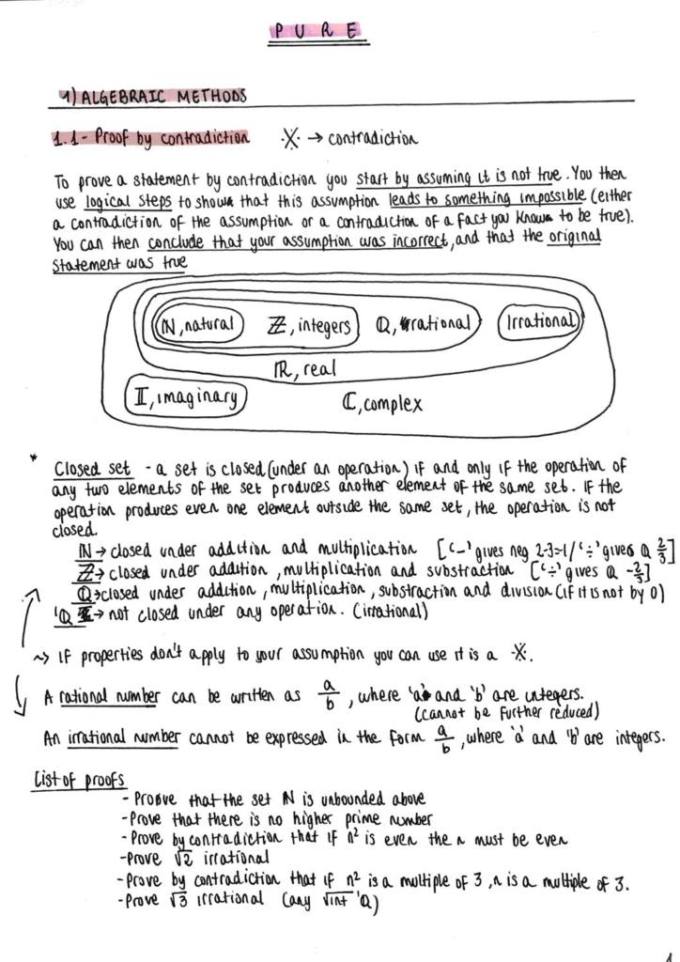 PURE
1) ALGEBRAIC METHODS
1.1 - Proof by contradiction ※ → contradiction
To prove a statement by contradiction you start by assuming it is not true. You then
use logical steps to show that this assumption leads to something impossible (either
a contradiction of the assumption or a contradiction of a fact you know to be true).
You can then conclude that your assumption was incorrect, and that the original
statement was true
ℕ, natural ℤ, integers ℚ, rational Irrational
ℝ, real
𝕀, imaginary ℂ, complex
* Closed set - a set is closed (under an operation) if and only if the operation of
any two elements of the set produces another element of the same set. If the
operation produces even one element outside the same set, the operation is not
closed.
ℕ → closed under addition and multiplication ['-' gives neg 2-3=-1 / '÷' gives ℚ 2/3]
ℤ → closed under addition, multiplication and substraction ['÷' gives ℚ -2/3]
ℚ → closed under addition, multiplication, substraction and division (if it is not by 0)
'ℚ → not closed under any operation. (irrational)
~> If properties don't apply to your assumption you can use it is a ※.
A rational number can be written as a/b, where 'a' and 'b' are integers.
(cannot be further reduced)
An irrational number cannot be expressed in the form a/b, where 'a' and 'b' are integers.
List of proofs
- Prove that the set ℕ is unbounded above
- Prove that there is no higher prime number
- Prove by contradiction that if n² is even the n must be even
- Prove √2 irrational
- Prove by contradiction that if n² is a multiple of 3, n is a multiple of 3.
- Prove √3 irrational (any √int 'ℚ)
1